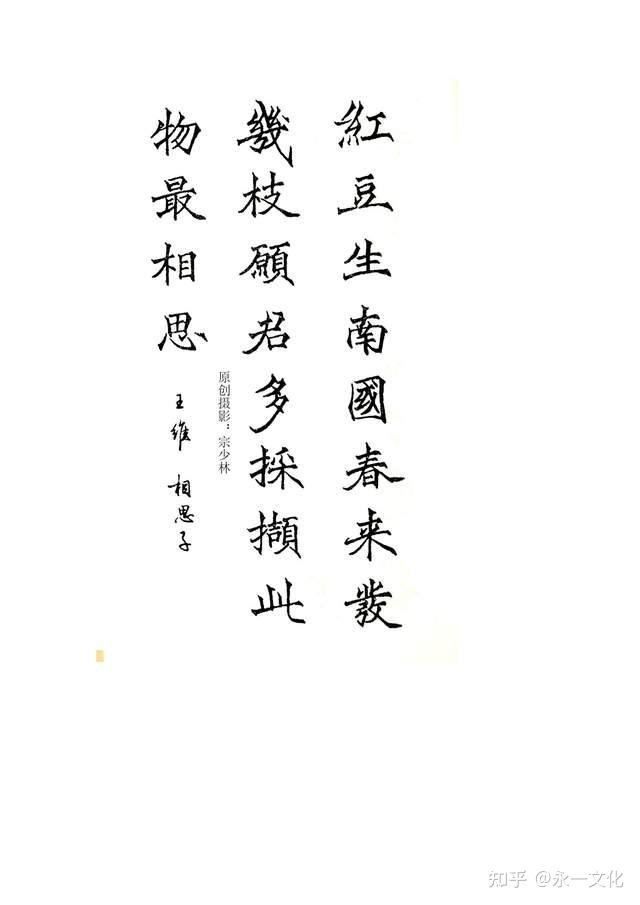 紅豆生南國春来發
幾枝願君多採擷此
物最相思
王維 相思子
原创摄影：宗少林
知乎 @永一文化